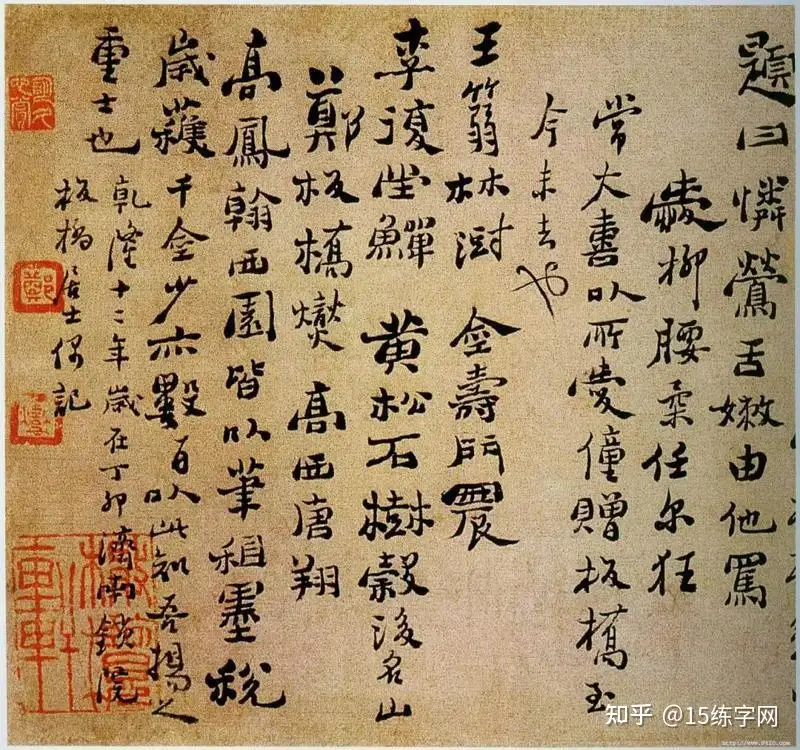 題曰憐鶯舌嫩由他罵
愛柳腰柔任尔狂
常大喜以所愛僮贈板橋至
今未去也
王翁林澍 金壽門農
李復堂鱓 黄松石樹榖後名山
鄭板橋燮 高西唐翔
高鳳翰西園皆以筆租墨稅
歲獲千金少亦數百以此知吾揚之
重士也 乾隆十二年歲在丁卯濟南鎖院
板橋居士偶記
鄭
知乎 @15练字网